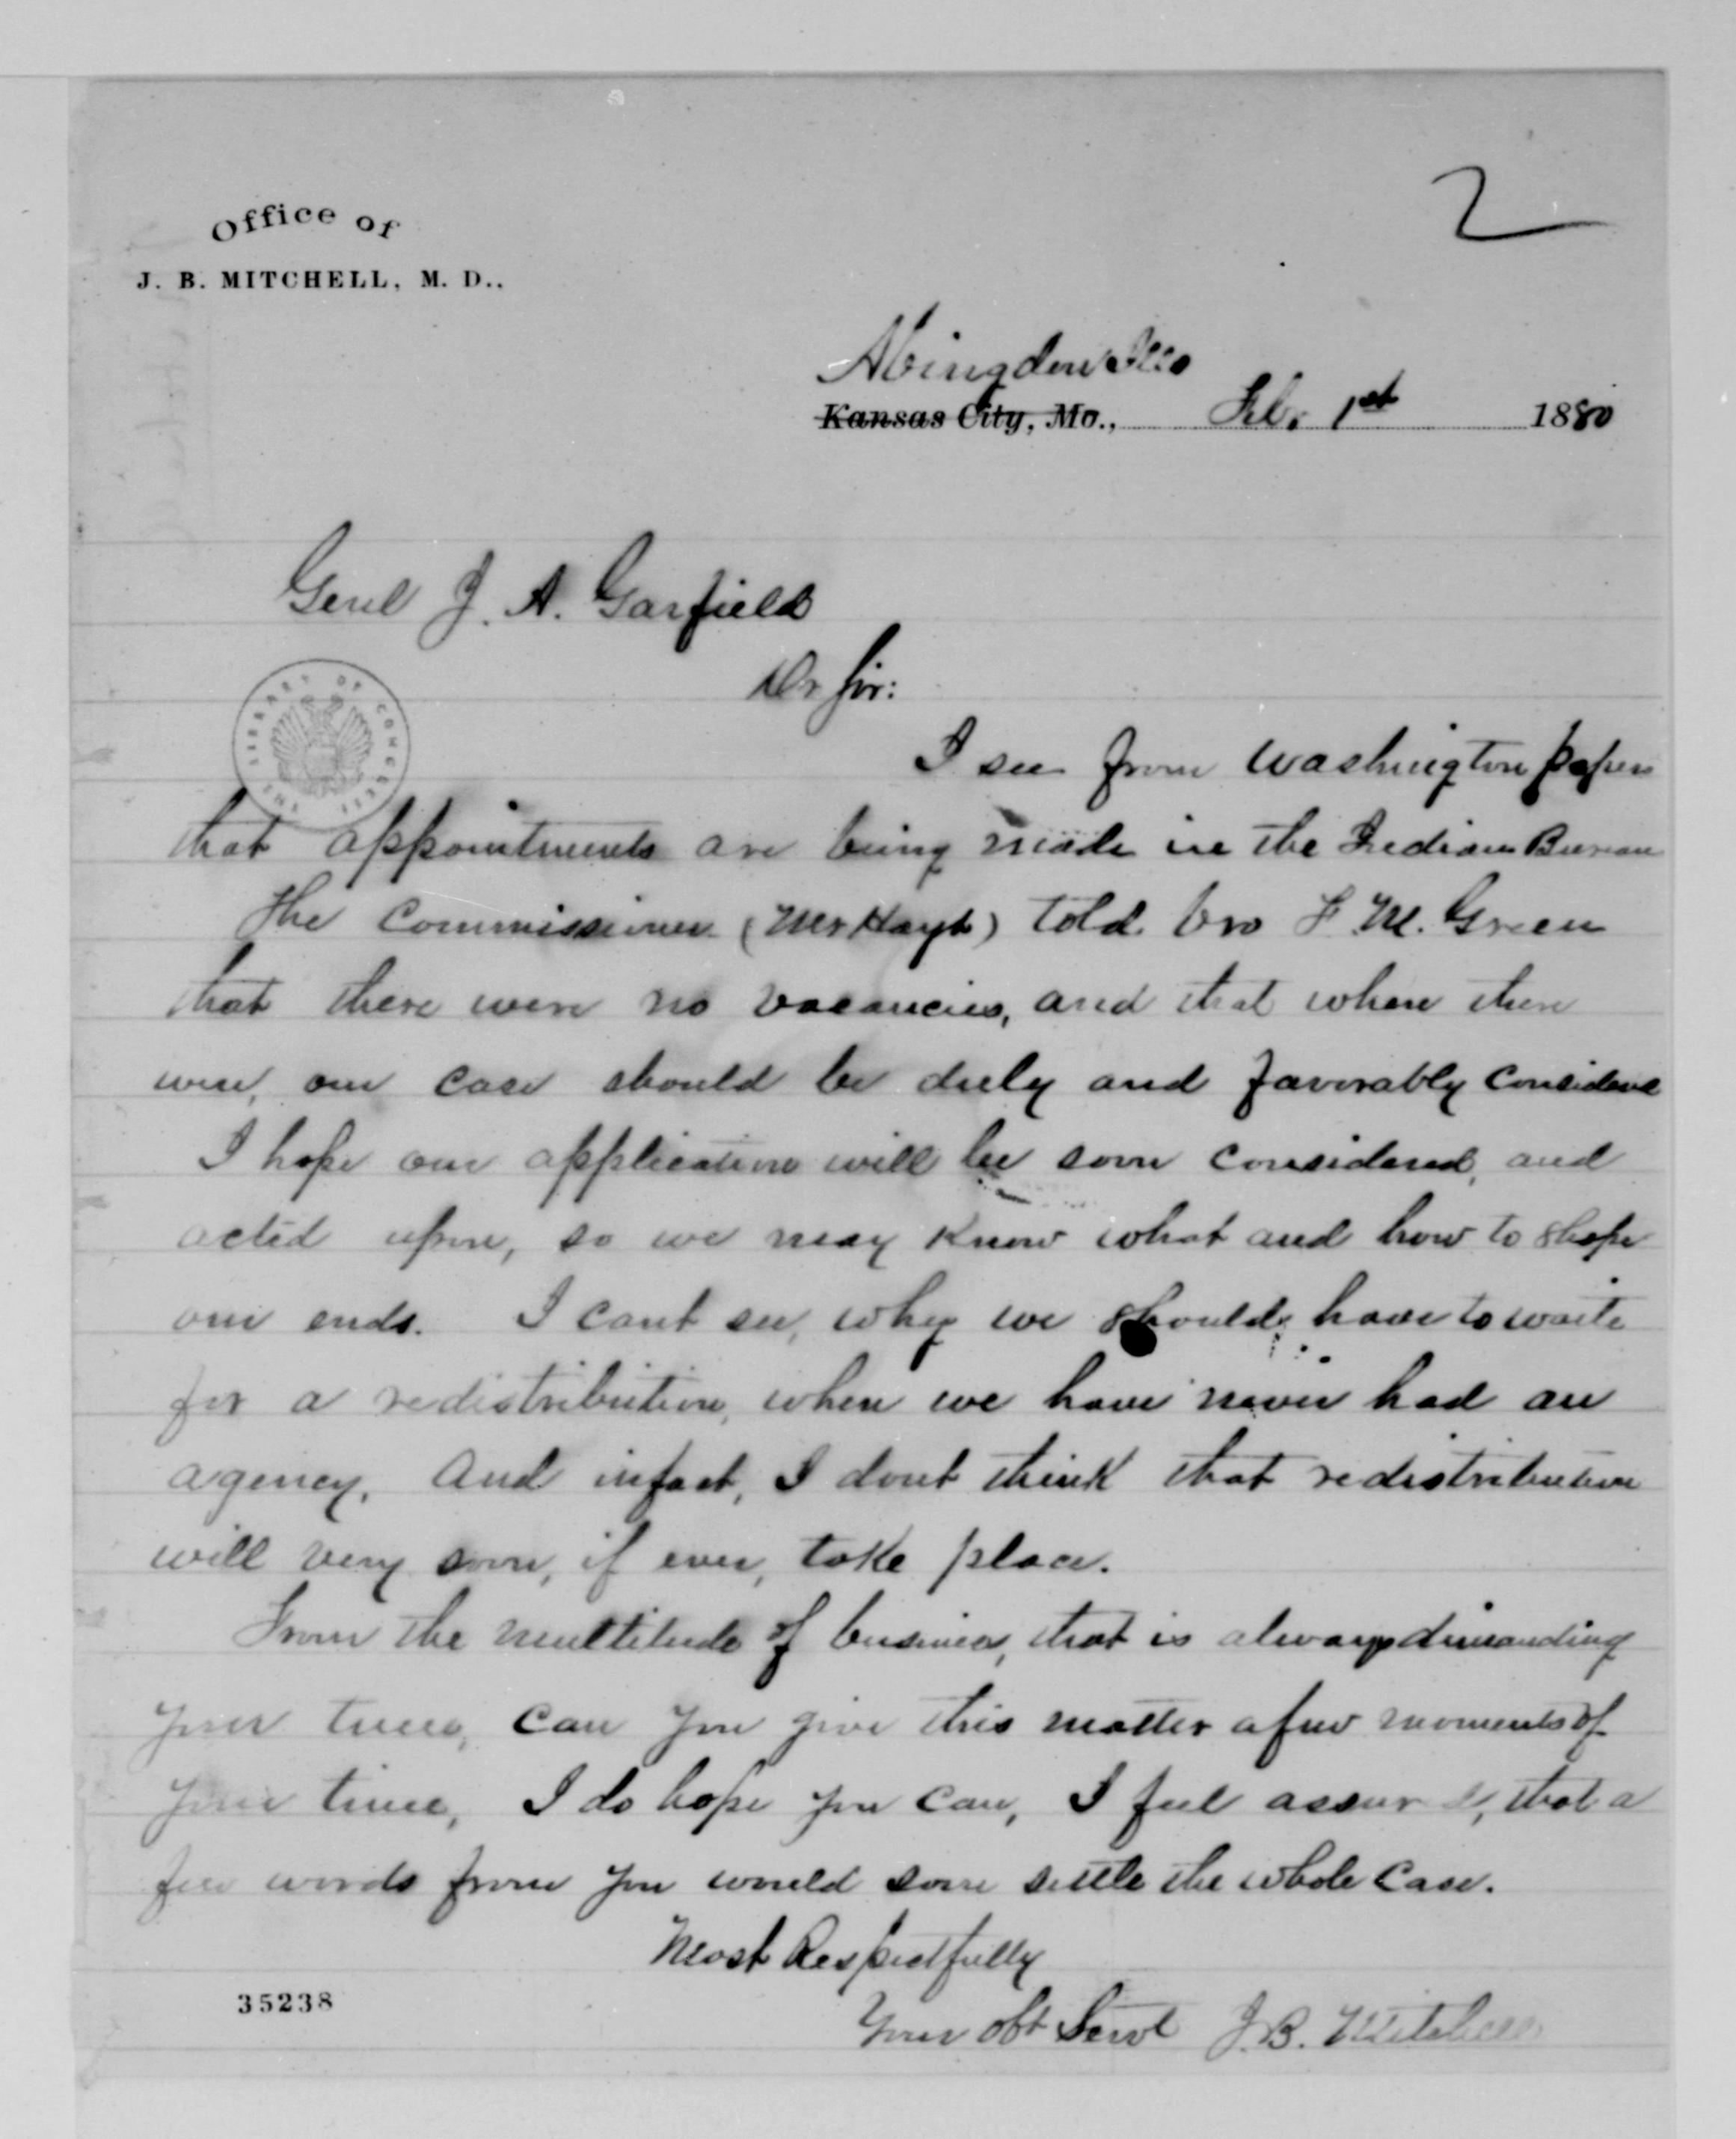 2
Office of
J. B. MITCHELL, M. D.,
Abingdon Ills
Kansas City, Mo., Feb. 1st 1880
Genl J. A. Garfield
Dr Sir:
THE LIBRARY OF CONGRESS
I see from Washington papers
that appointments are being made in the Indian Bureau
The Commissioner (Mr Hayt) told bro F. M. Green
that there were no vacancies, and that when there
were, our case should be duly and favorably considered
I hope our application will be soon considered, and
acted upon, so we may Know what and how to shape
our ends. I cant see, why we should have to waite
for a redistribution, when we have never had an
agency. And infact, I dont think that redistribution
will very soon, if ever, take place.
From the multitude of business, that is always demanding
your time, can you give this matter a few moments of
your time, I do hope you can, I feel assured, that a
few words from you would soon settle the whole Case.
Most Respectfully
Your obt Servt J. B. Mitchell
35238